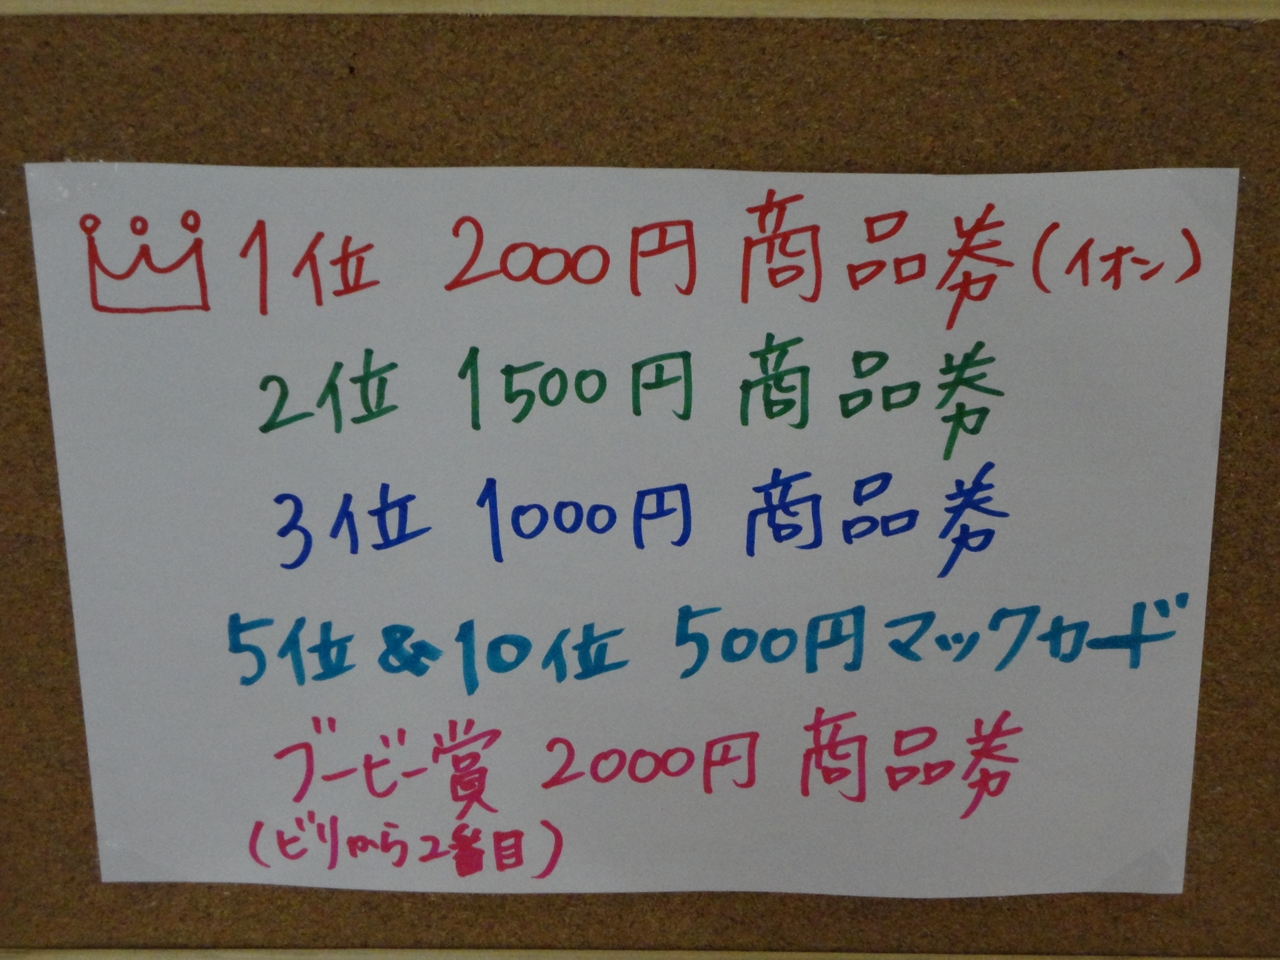 1位 2000円 商品券(イオン)
2位 1500円 商品券
3位 1000円 商品券
5位&10位 500円マックカード
ブービー賞 2000円 商品券
(ビリから2番目)